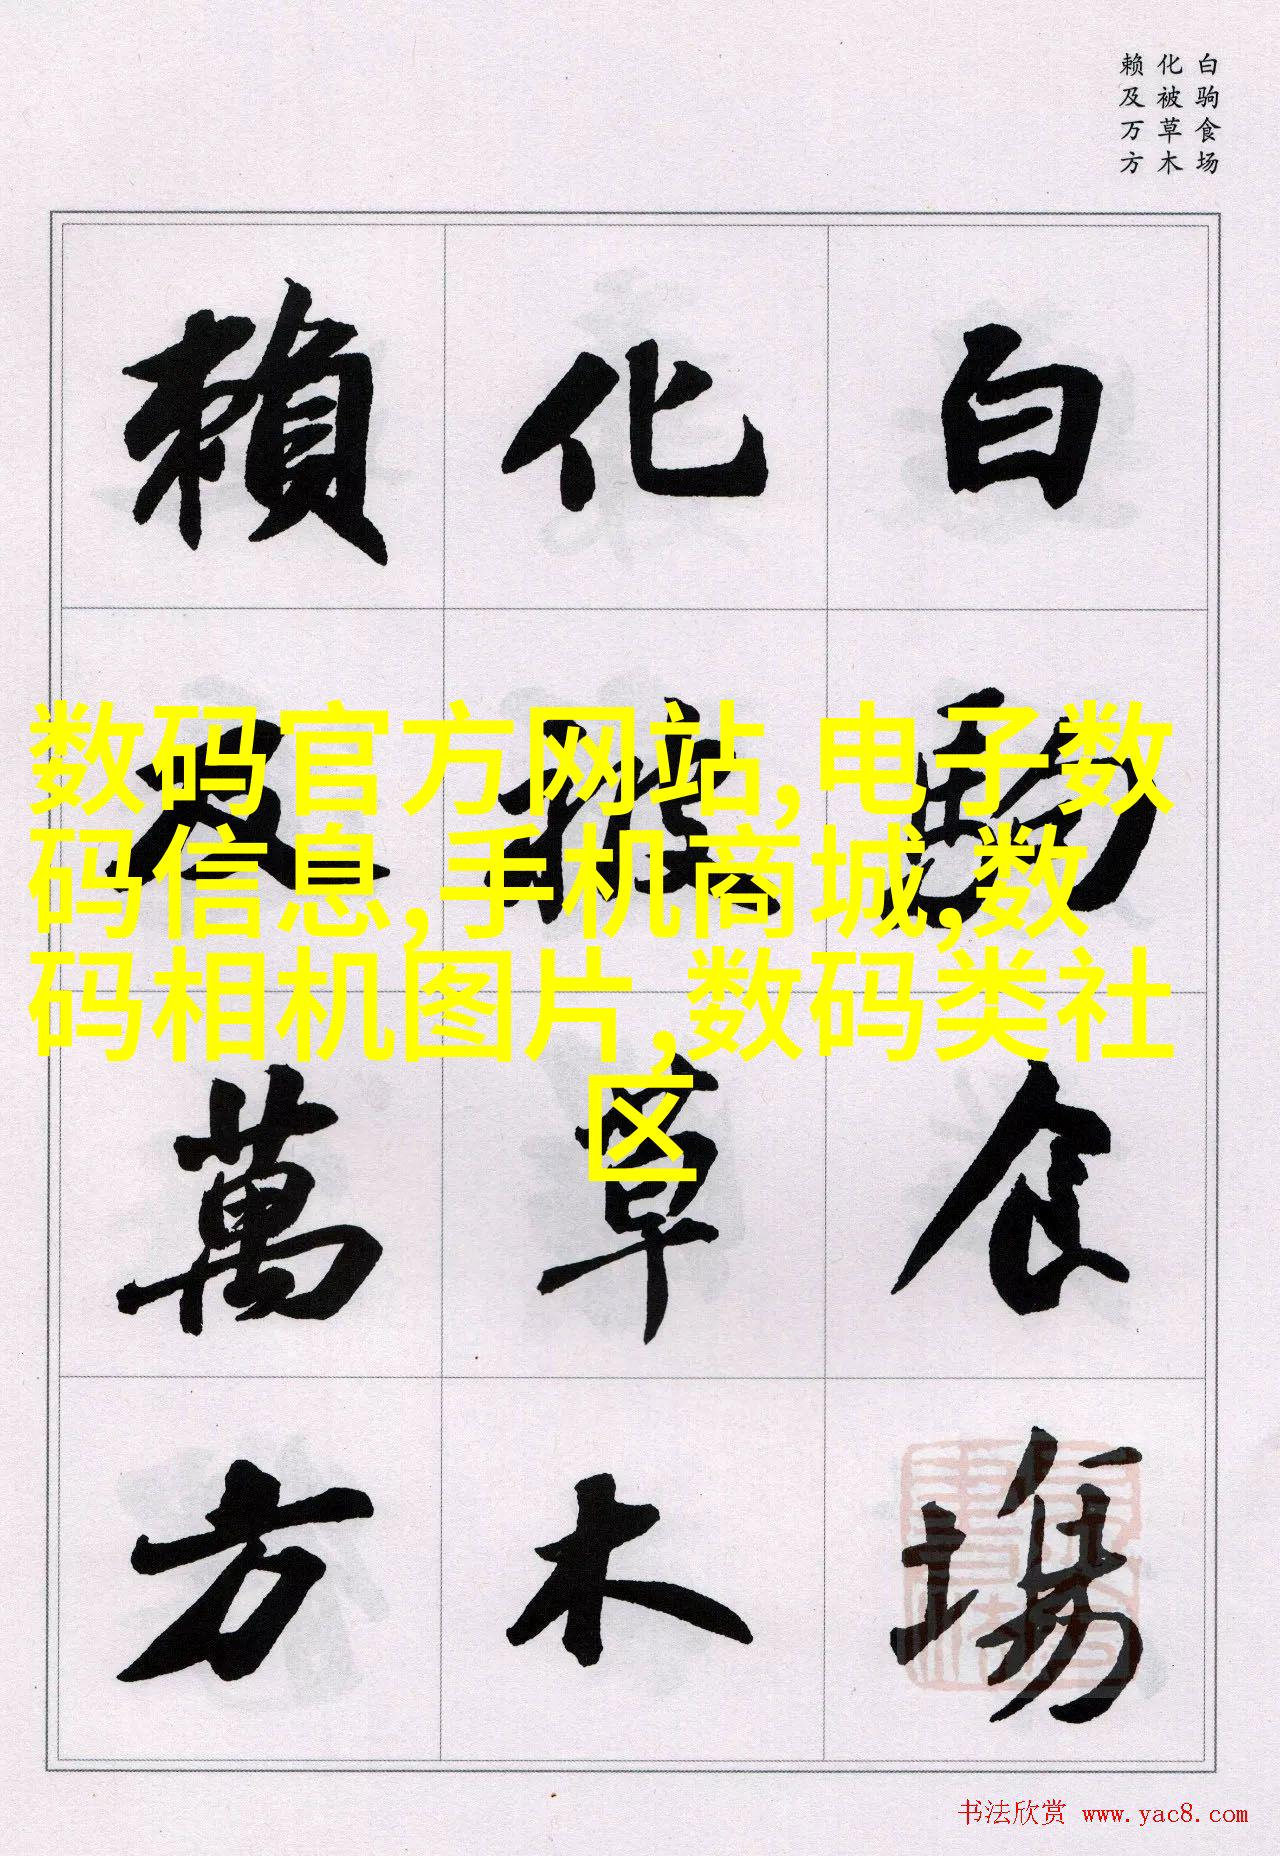 白驹食场
化被草木
赖及万方
白駒食場
化被草木
賴及萬方
数码官方网站,电子数
码信息,手机商城,数
码相机图片,数码类社
区
书法欣赏 www.yac8.com